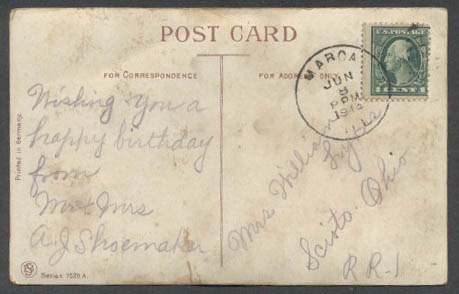 POST CARD
FOR CORRESPONDENCE
FOR ADDRESS ONLY
MAROA
JUN
5
PM
191
U.S. POSTAGE
1 CENT 1
Printed in Germany.
Wishing you a
happy birthday
from
Mr & Mrs
A.J. Shoemaker
Mrs William
Scioto Ohio
R R-1
Series 7020 A.